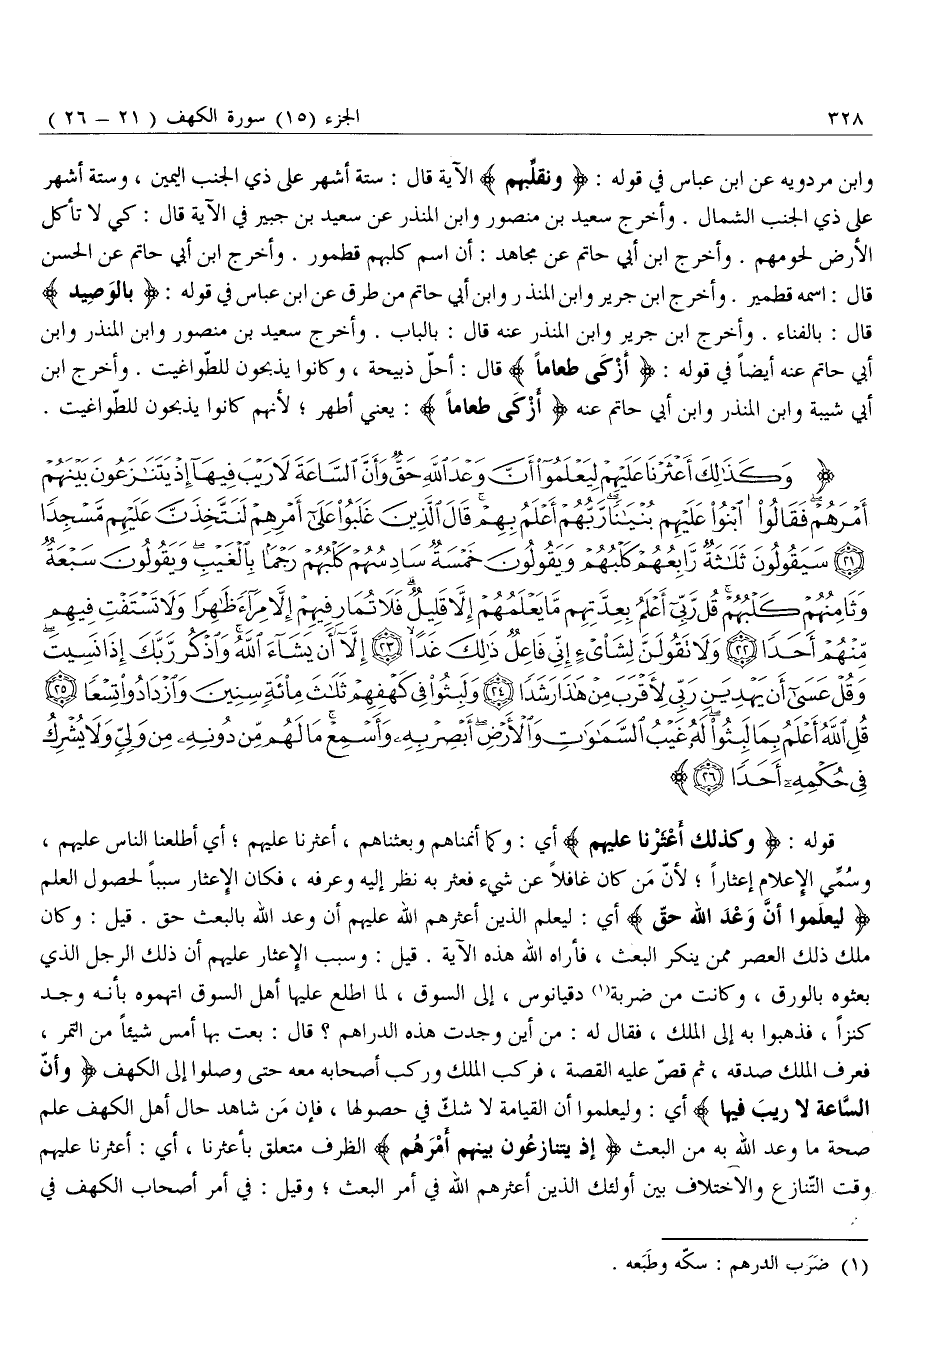 ٣٢٨ الجزء (١٥) سورة الكهف ( ٢١ – ٢٦ )
وابن مردويه عن ابن عباس في قوله : ﴿ ونقلِّبهم ﴾ الآية قال : ستة أشهر على ذي الجنب اليمين ، وستة أشهر
على ذي الجنب الشمال . وأخرج سعيد بن منصور وابن المنذر عن سعيد بن جبير في الآية قال : كي لا تأكل
الأرض لحومهم . وأخرج ابن أبي حاتم عن مجاهد : أن اسم كلبهم قطمور . وأخرج ابن أبي حاتم عن الحسن
قال : اسمه قطمير . وأخرج ابن جرير وابن المنذر وابن أبي حاتم من طرق عن ابن عباس في قوله : ﴿ بالوَصِيد ﴾
قال : بالفناء . وأخرج ابن جرير وابن المنذر عنه قال : بالباب . وأخرج سعيد بن منصور وابن المنذر وابن
أبي حاتم عنه أيضاً في قوله : ﴿ أَزْكى طعاماً ﴾ قال : أحلّ ذبيحة ، وكانوا يذبحون للطّواغيت . وأخرج ابن
أبي شيبة وابن المنذر وابن أبي حاتم عنه ﴿ أَزْكى طعاماً ﴾ : يعني أطهر ؛ لأنهم كانوا يذبحون للطّواغيت .
﴿ وَكَذَٰلِكَ أَعْثَرْنَا عَلَيْهِمْ لِيَعْلَمُوٓا۟ أَنَّ وَعْدَ ٱللَّهِ حَقٌّ وَأَنَّ ٱلسَّاعَةَ لَا رَيْبَ فِيهَآ إِذْ يَتَنَٰزَعُونَ بَيْنَهُمْ
أَمْرَهُمْ ۖ فَقَالُوا۟ ٱبْنُوا۟ عَلَيْهِم بُنْيَٰنًا ۖ رَّبُّهُمْ أَعْلَمُ بِهِمْ ۚ قَالَ ٱلَّذِينَ غَلَبُوا۟ عَلَىٰٓ أَمْرِهِمْ لَنَتَّخِذَنَّ عَلَيْهِم مَّسْجِدًا
﴿٢١﴾ سَيَقُولُونَ ثَلَٰثَةٌ رَّابِعُهُمْ كَلْبُهُمْ وَيَقُولُونَ خَمْسَةٌ سَادِسُهُمْ كَلْبُهُمْ رَجْمًۢا بِٱلْغَيْبِ ۖ وَيَقُولُونَ سَبْعَةٌ
وَثَامِنُهُمْ كَلْبُهُمْ ۚ قُل رَّبِّىٓ أَعْلَمُ بِعِدَّتِهِم مَّا يَعْلَمُهُمْ إِلَّا قَلِيلٌ ۗ فَلَا تُمَارِ فِيهِمْ إِلَّا مِرَآءً ظَٰهِرًا وَلَا تَسْتَفْتِ فِيهِم
مِّنْهُمْ أَحَدًا ﴿٢٢﴾ وَلَا تَقُولَنَّ لِشَا۟ىْءٍ إِنِّى فَاعِلٌ ذَٰلِكَ غَدًا ﴿٢٣﴾ إِلَّآ أَن يَشَآءَ ٱللَّهُ ۚ وَٱذْكُر رَّبَّكَ إِذَا نَسِيتَ
وَقُلْ عَسَىٰٓ أَن يَهْدِيَنِ رَبِّى لِأَقْرَبَ مِنْ هَٰذَا رَشَدًا ﴿٢٤﴾ وَلَبِثُوا۟ فِى كَهْفِهِمْ ثَلَٰثَ مِا۟ئَةٍ سِنِينَ وَٱزْدَادُوا۟ تِسْعًا ﴿٢٥﴾
قُلِ ٱللَّهُ أَعْلَمُ بِمَا لَبِثُوا۟ ۖ لَهُۥ غَيْبُ ٱلسَّمَٰوَٰتِ وَٱلْأَرْضِ ۖ أَبْصِرْ بِهِۦ وَأَسْمِعْ ۚ مَا لَهُم مِّن دُونِهِۦ مِن وَلِىٍّ وَلَا يُشْرِكُ
فِى حُكْمِهِۦٓ أَحَدًا ﴿٢٦﴾ ﴾
قوله : ﴿ وكذلك أَعْثَرْنا عليهم ﴾ أي : وكما أنمناهم وبعثناهم ، أعثرنا عليهم ؛ أي أطلعنا الناس عليهم ،
وسُمِّي الإِعلام إعثاراً ؛ لأنّ مَن كان غافلاً عن شيء فعثر به نظر إليه وعرفه ، فكان الإِعثار سبباً لحصول العلم
﴿ ليعلَموا أنَّ وَعْدَ الله حقّ ﴾ أي : ليعلم الذين أعثرهم الله عليهم أن وعد الله بالبعث حق . قيل : وكان
ملك ذلك العصر ممن ينكر البعث ، فأراه الله هذه الآية . قيل : وسبب الإِعثار عليهم أن ذلك الرجل الذي
بعثوه بالورق ، وكانت من ضربة(١) دقيانوس ، إلى السوق ، لما اطلع عليها أهل السوق اتهموه بأنه وجد
كنزاً ، فذهبوا به إلى الملك ، فقال له : من أين وجدت هذه الدراهم ؟ قال : بعت بها أمس شيئاً من التمر ،
فعرف الملك صدقه ، ثم قصّ عليه القصة ، فركب الملك وركب أصحابه معه حتى وصلوا إلى الكهف ﴿ وأنّ
السَّاعة لا ريبَ فيها ﴾ أي : وليعلموا أن القيامة لا شكّ في حصولها ، فإن مَن شاهد حال أهل الكهف علم
صحة ما وعد الله به من البعث ﴿ إذ يتنازعُون بينهم أَمْرَهُم ﴾ الظرف متعلق بأعثرنا ، أي : أعثرنا عليهم
وقت التّنازع والاختلاف بين أولئك الذين أعثرهم الله في أمر البعث ؛ وقيل : في أمر أصحاب الكهف في
(١) ضَرَب الدرهم : سكّه وطَبَعه .